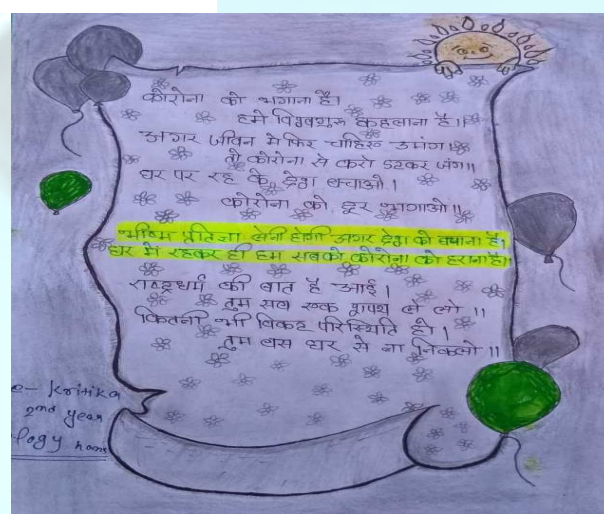 कोरोना को भगाना है।
हमें विश्वगुरु कहलाना है।।
अगर जीवन में फिर चाहिए उमंग।
तो कोरोना से करो डटकर जंग।।
घर पर रह के देश बचाओ।
कोरोना को दूर भागाओ।।
भीष्म प्रतिज्ञा लेनी होगी अगर देश को बचाना है।
घर में रहकर ही हम सबको कोरोना को हराना है।।
राष्ट्रधर्म की बात है आई।
तुम सब एक शपथ ले लो।।
कितनी भी विकट परिस्थिति हो।
तुम बस घर से ना निकलो।।
e- Kritika
2nd year
logy hons